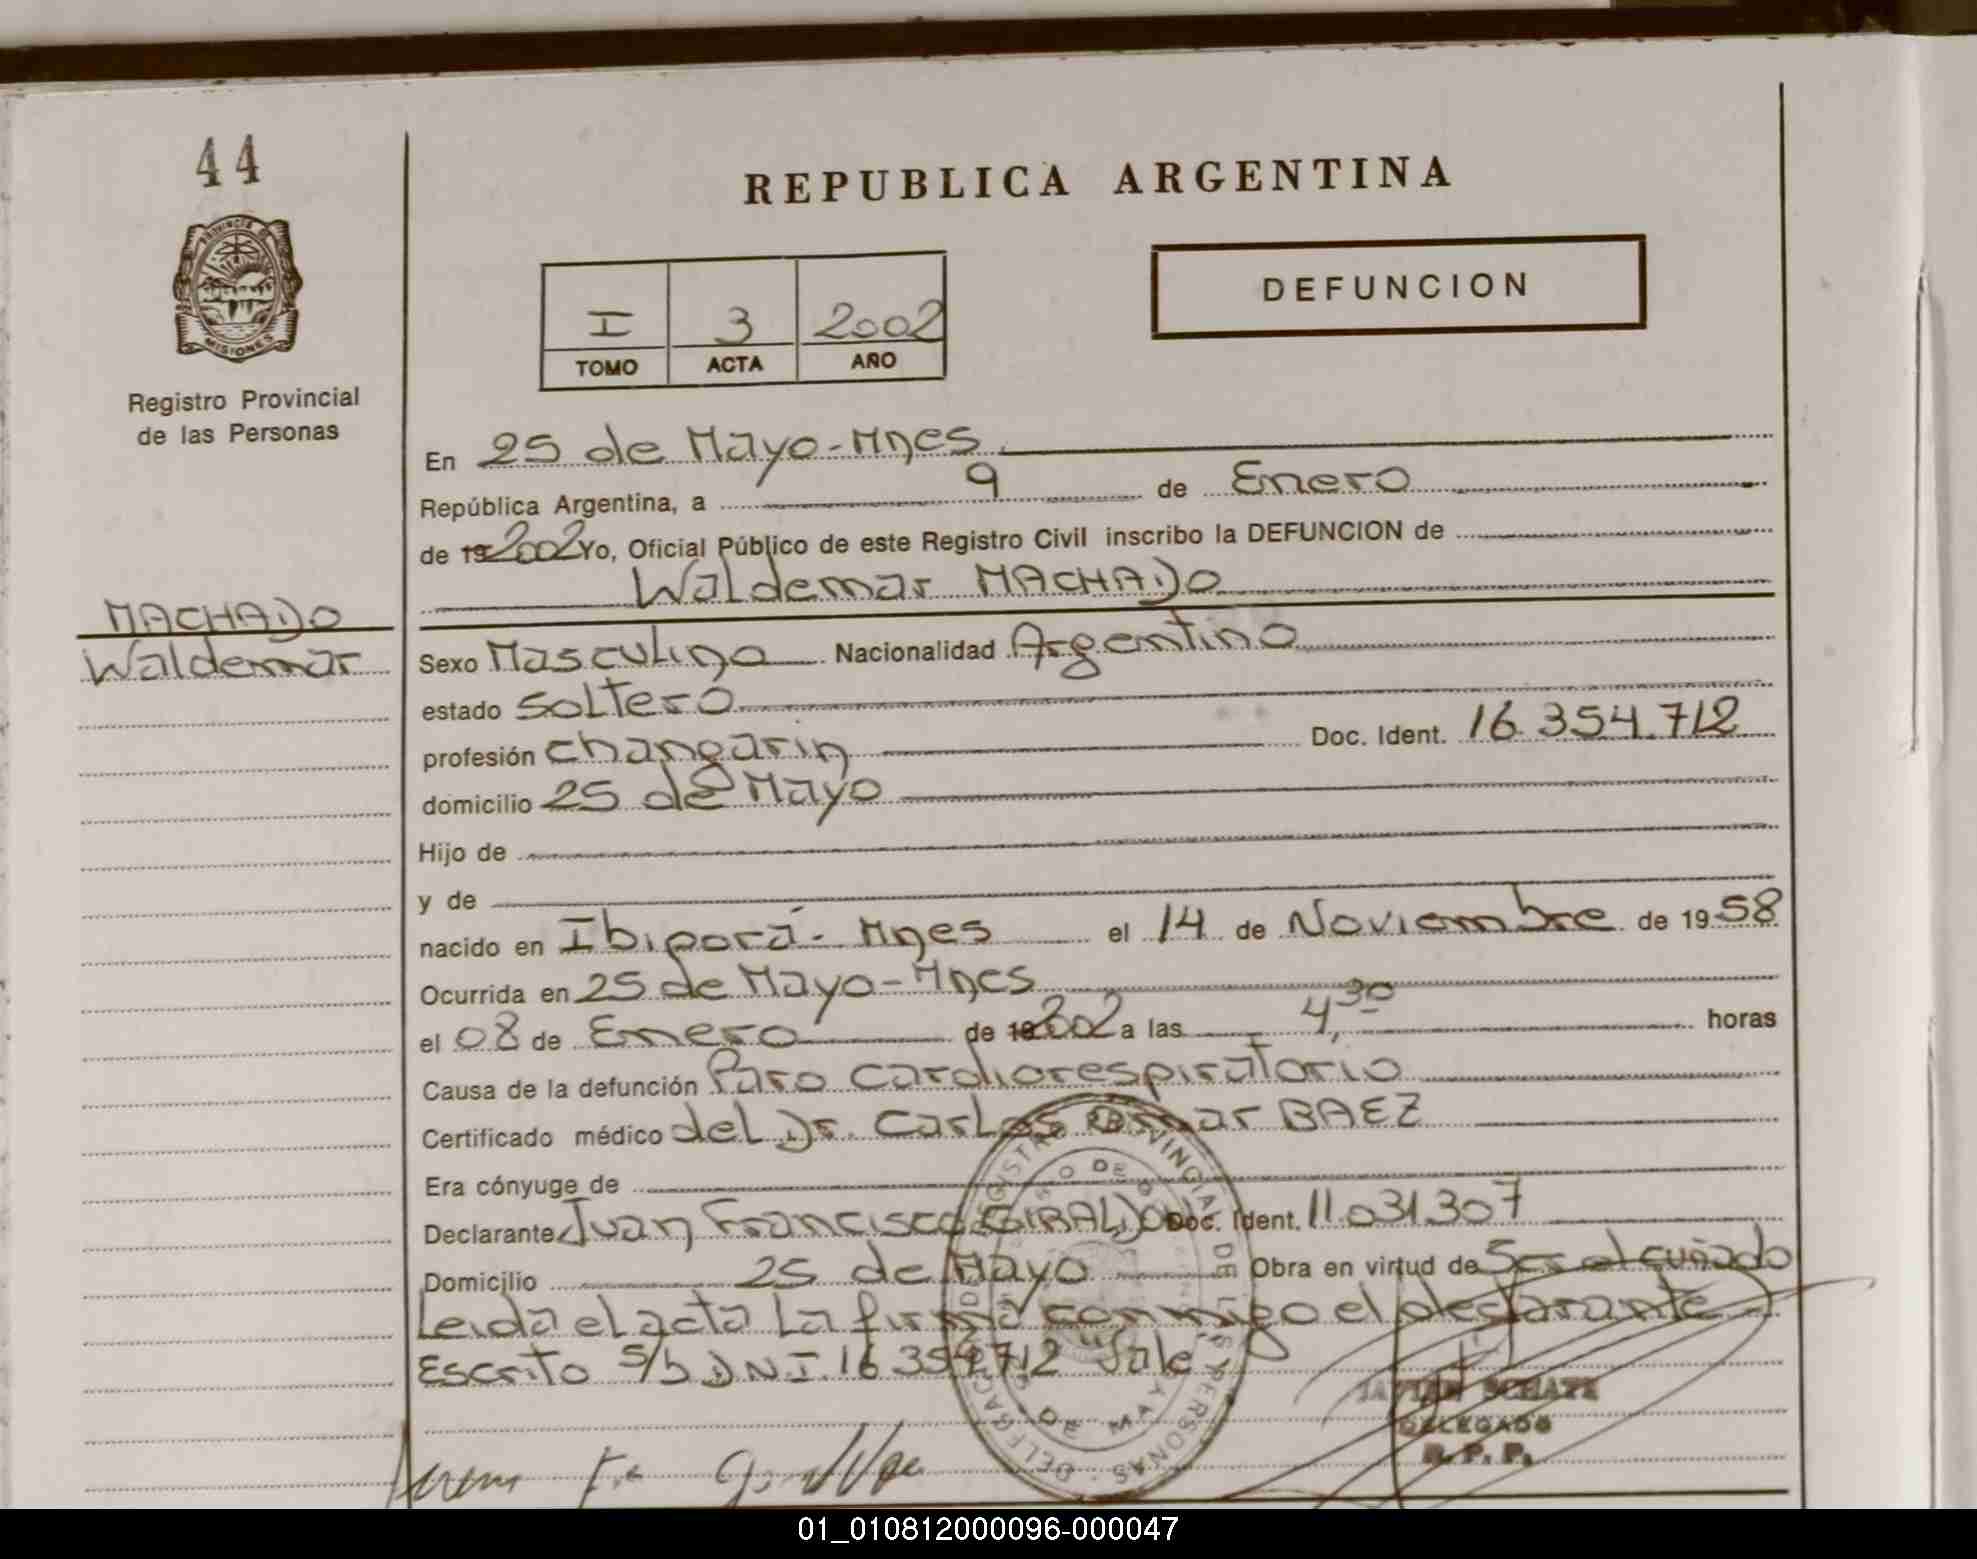 44
PROVINCIA DE
MISIONES
Registro Provincial
de las Personas
MACHADO
Waldemar
REPUBLICA ARGENTINA
I 3 2002
TOMO ACTA AÑO
DEFUNCION
En 25 de Mayo-Mnes.
República Argentina, a 9 de Enero
de 19 2002 Yo, Oficial Público de este Registro Civil inscribo la DEFUNCION de
Waldemar MACHADO
Sexo Masculino Nacionalidad Argentino
estado Soltero
profesión changarin Doc. Ident. 16.354.712
domicilio 25 de Mayo
Hijo de
y de
nacido en Ibiporá- Mnes el 14 de Noviembre de 19 58
Ocurrida en 25 de Mayo-Mnes
el 08 de Enero de 19 2002 a las 4,30 horas
Causa de la defunción Paro cardiorespiratorio
Certificado médico del Dr. Carlos Omar BAEZ
Era cónyuge de
Declarante Juan Francisco GIRALDO Doc. Ident. 11.031.307
Domicilio 25 de Mayo Obra en virtud de Ser el cuñado
Leida el acta La firma conmigo el declarante
Escrito S/b D.N.I. 16.354.712 Vale
DELEGADO
R. P. P.
01_010812000096-000047